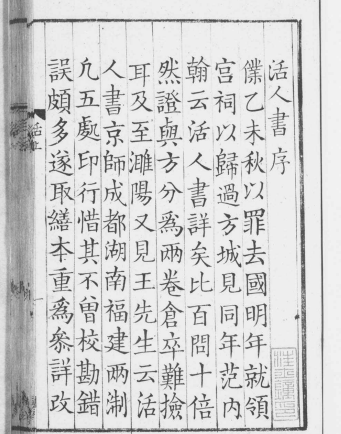 活人書序
僕乙未秋以罪去國明年就領
宫祠以歸過方城見同年范内
翰云活人書詳矣比百問十倍
然證與方分為兩卷倉卒難撿
耳及至濉陽又見王先生云活
人書京師成都湖南福建兩淛
凢五處印行惜其不曾校勘錯
誤頗多遂取繕本重為叅詳改